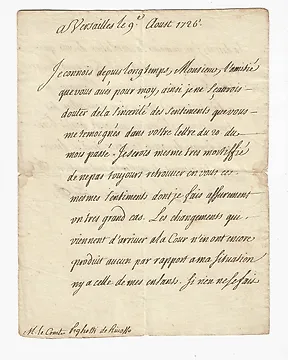 A Versailles le 9.e Aoust 1726.
Je connois depuis longtemps, Monsieur, l'amitié
que vous avés pour moy, ainsi je ne sçaurois
douter de la sincerité des sentiments que vous
me temoignés dans vôtre lettre du 20 du
mois passé. Je serois mesme tres mortiffié
de ne pas toujours retrouver en vous ces
mesmes sentiments dont je fais assurément
un tres grand cas. Les changements que
viennent d'arriver a la Cour n'en ont encore
produit aucun par rapport a ma situation
ny a celle de mes enfants. Si rien ne se fait
M. le Comte